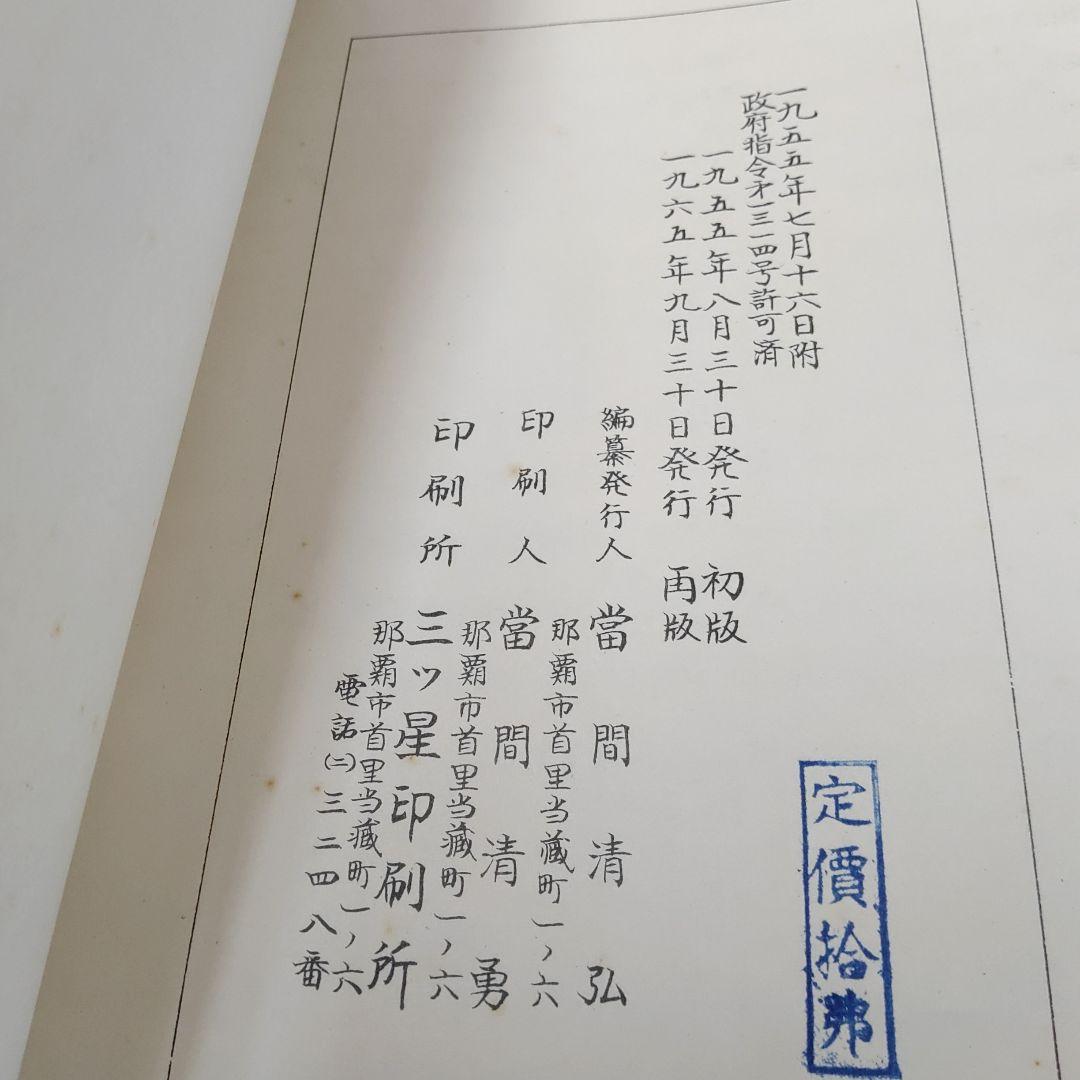 一九五五年七月十六日附
政府指令才一三一四号許可済
一九五五年八月三十日発行　初版
一九六五年九月三十日発行　再版
編纂発行人　當間清弘
那覇市首里当蔵町一ノ六
印刷人　當間清勇
那覇市首里当蔵町一ノ六
印刷所　三ッ星印刷所
那覇市首里当蔵町一ノ六
電話(二)三二四八番
定價拾弗